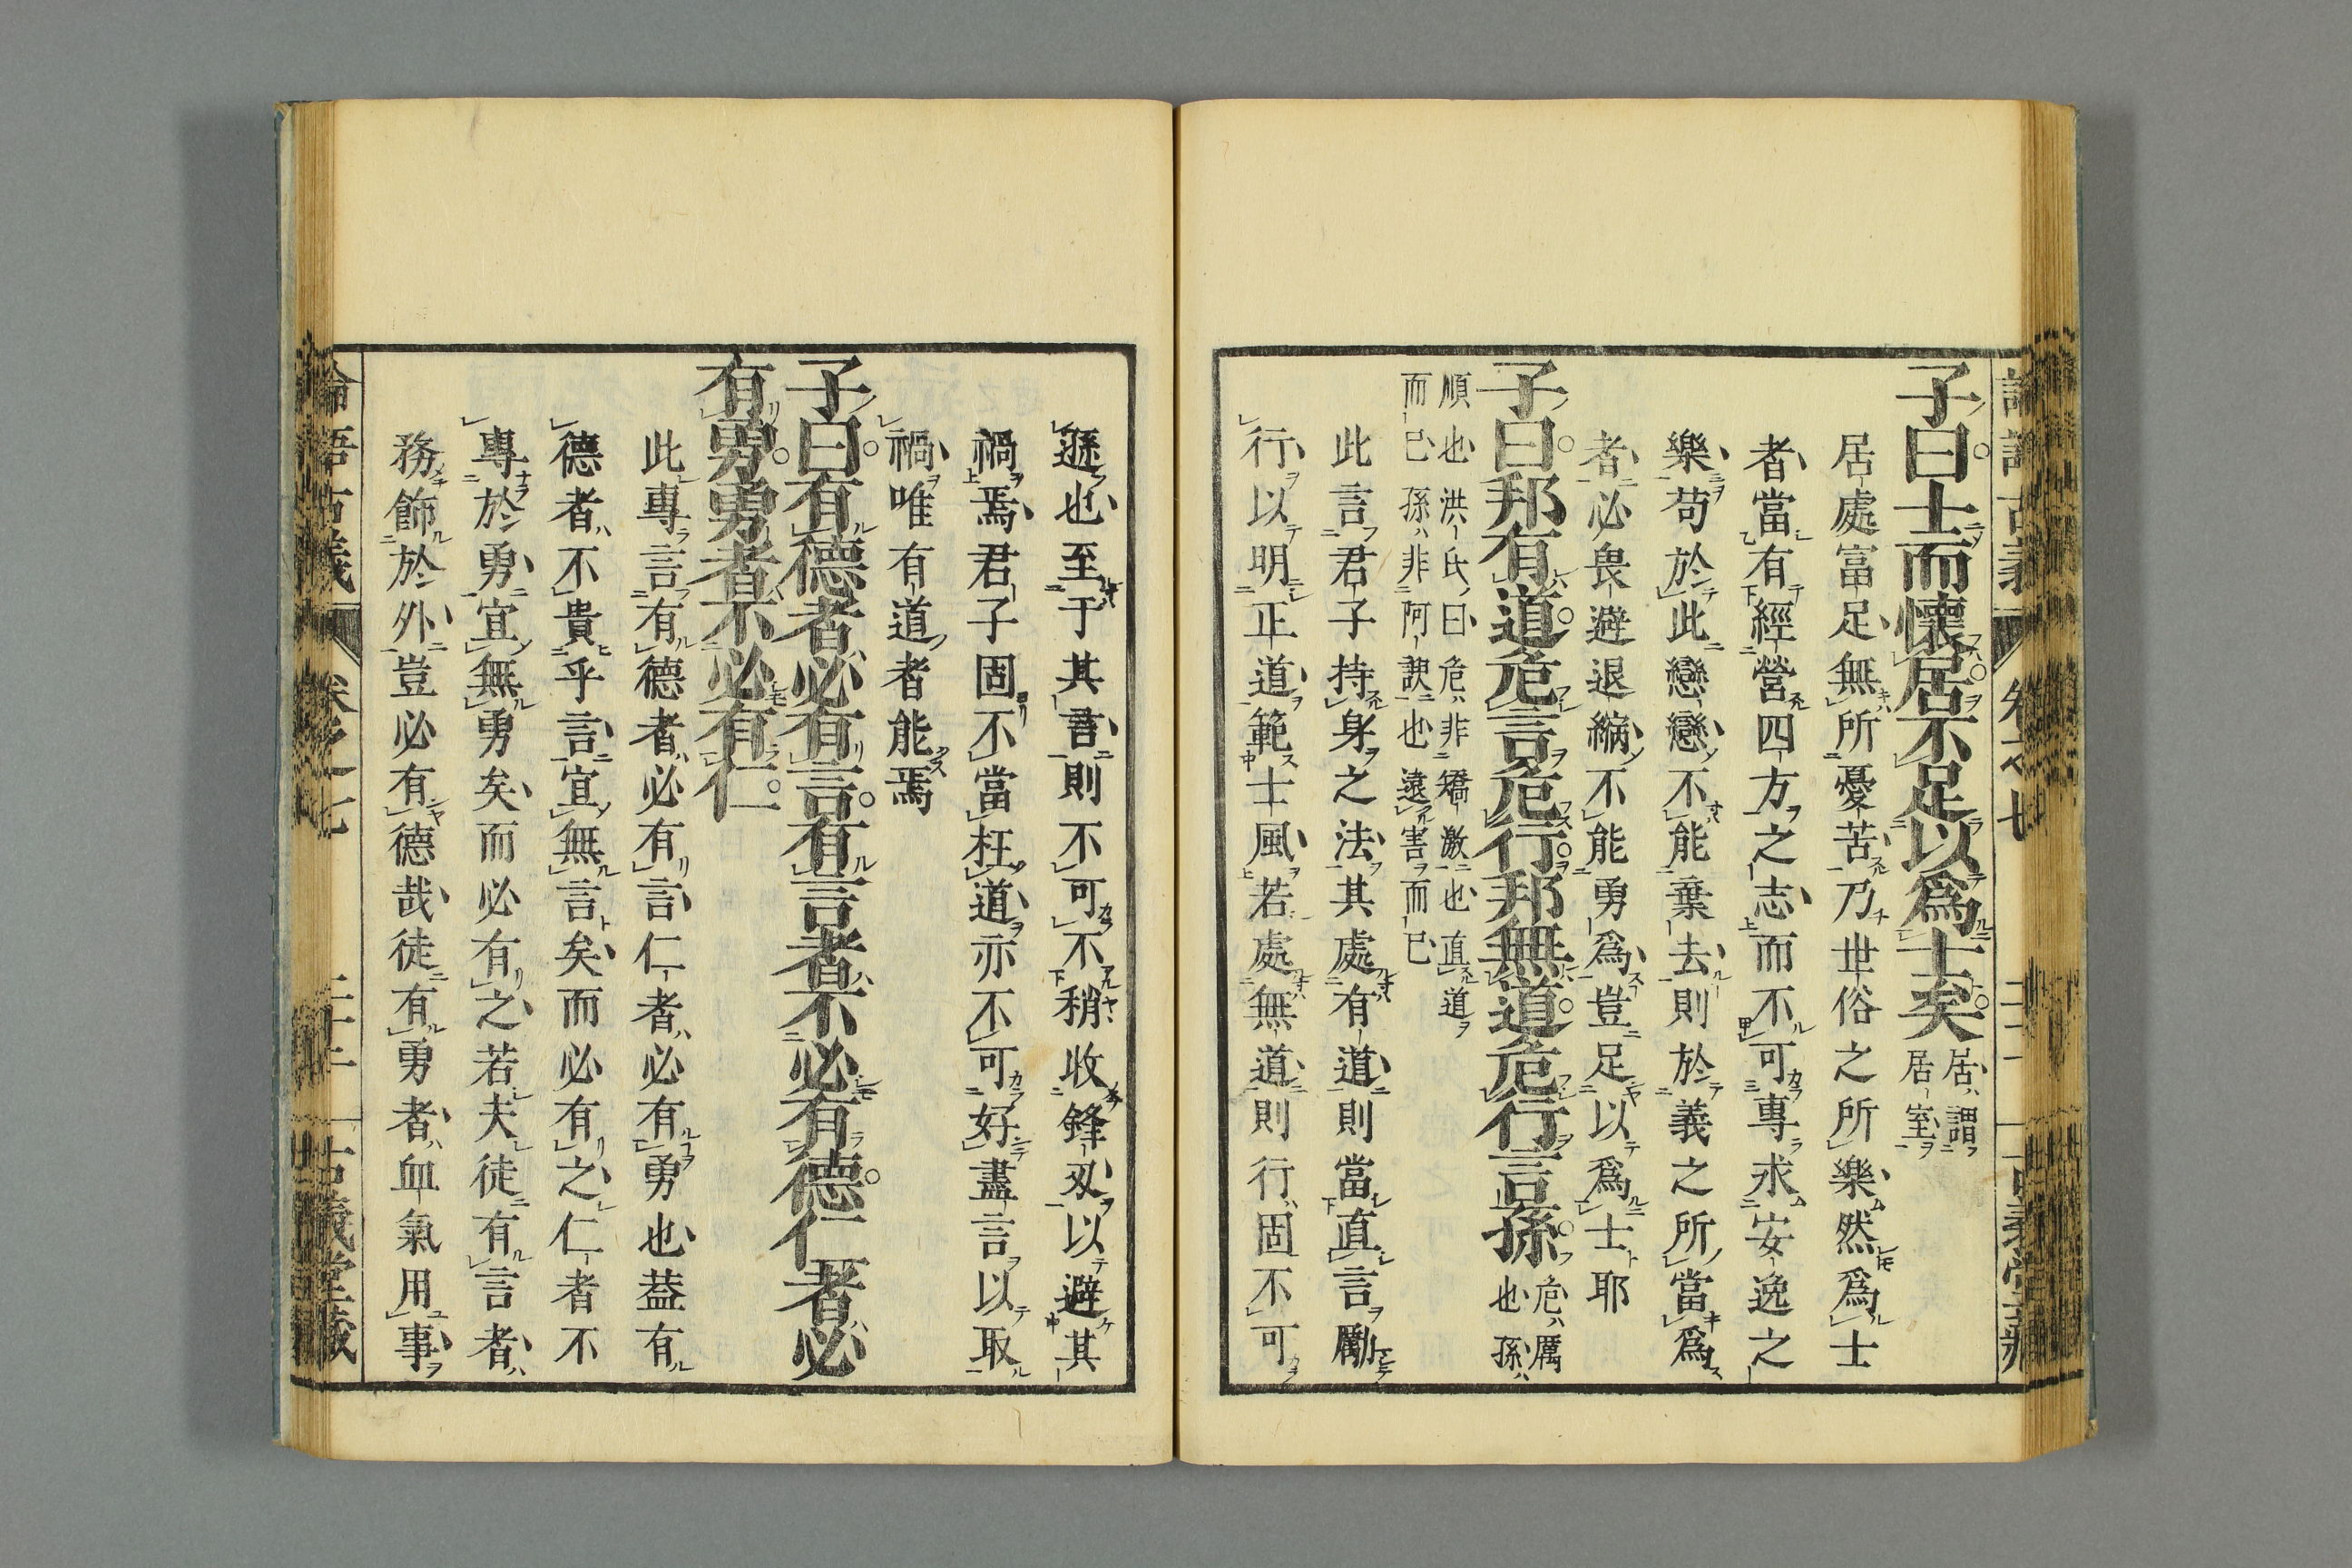 子曰士而懷居不足以爲士矣 居謂居室
居處富足無所憂苦乃世俗之所樂然爲士
者當有經營四方之志而不可專求安逸之
樂苟於此戀戀不能棄去則於義之所當爲
者必畏避退縮不能勇爲豈足以爲士耶
子曰邦有道危言危行邦無道危行言孫 危厲也孫
順也洪氏曰危非矯激也直道
而已孫非阿諛也遠害而已
此言君子持身之法其處有道則當直言勵
行以明正道範士風若處無道則行固不可
遜也至于其言則不可不稍收鋒刃以避其
禍焉君子固不當枉道亦不可好盡言以取
禍唯有道者能焉
子曰有德者必有言有言者不必有德仁者必
有勇勇者不必有仁
此專言有德者必有言仁者必有勇也葢有
德者不貴乎言宜無言矣而必有之仁者不
專於勇宜無勇矣而必有之若夫徒有言者
務飾於外豈必有德哉徒有勇者血氣用事
論語古義 卷之七 古義堂藏